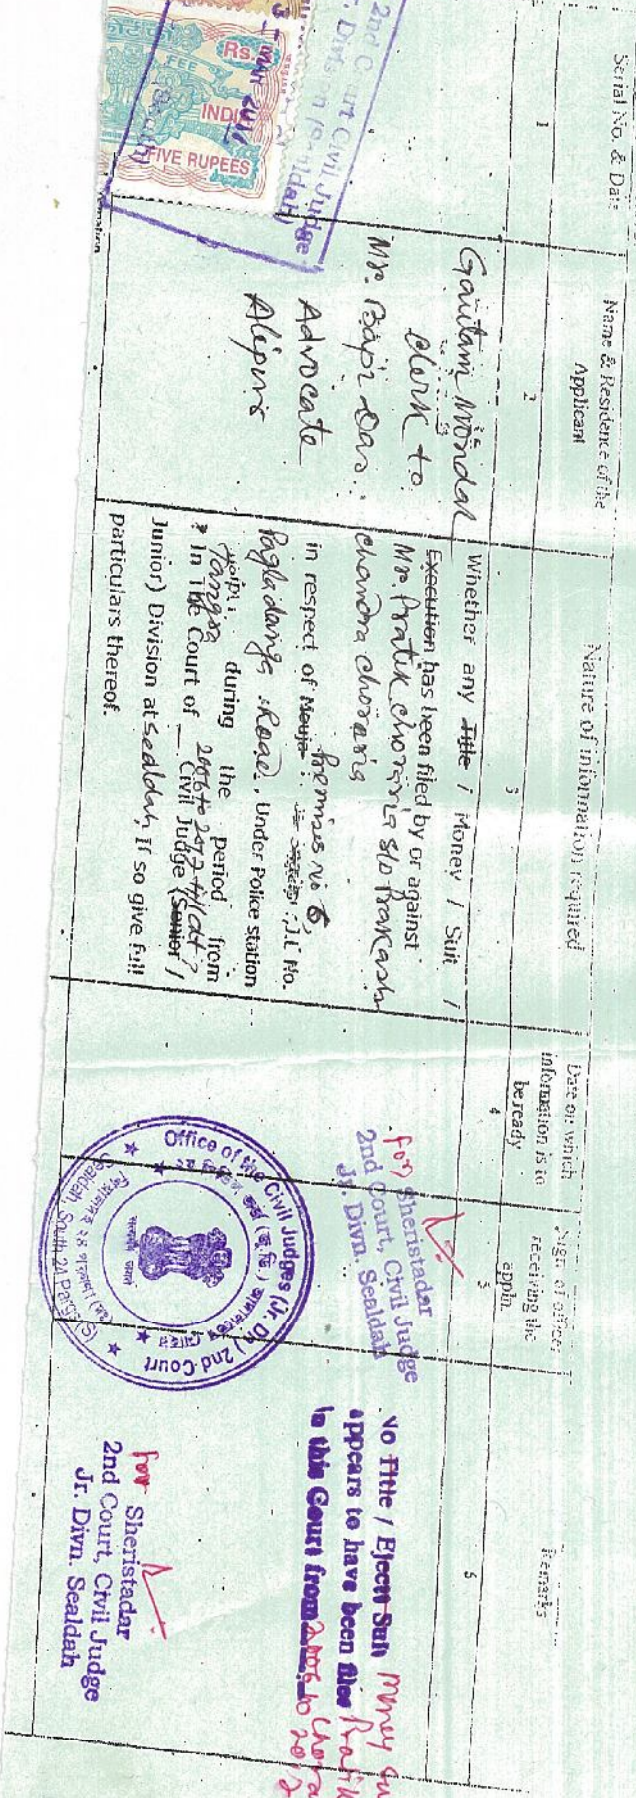 Serial No. & Date
Name & Residence of the
Applicant
Nature of information required
Date on which
information is to
be ready
Sign of officer
receiving the
appln.
Remarks
1
2
3
4
5
6
2nd Court Civil Judge
Division (Sealdah)
Rs.
FEE
INDIA
FIVE RUPEES
Gautam Mondal
Clerk to
Mr. Bapi Das.
Advocate
Alipur
Whether any Title / Money / Suit /
Execution has been filed by or against
Mr. Pratik Choraria S/o Prakash
Chandra Choraria
in respect of Mouja : Premises No 6, J.L No.
Pagladanga Road, Under Police station
Tangra during the period from
2006 to 2017
In the Court of Civil Judge (Senior /
Junior) Division at Sealdah, If so give full
particulars thereof.
for Sheristadar
2nd Court, Civil Judge
Jr. Divn. Sealdah
Office of the Civil Judges (Jr. Dn.) 2nd Court
Sealdah, South 24 Pargs (S)
No Title / Eject Suit Money
appears to have been filed Pratik
In this Court from 2006 to
for Sheristadar
2nd Court, Civil Judge
Jr. Divn. Sealdah